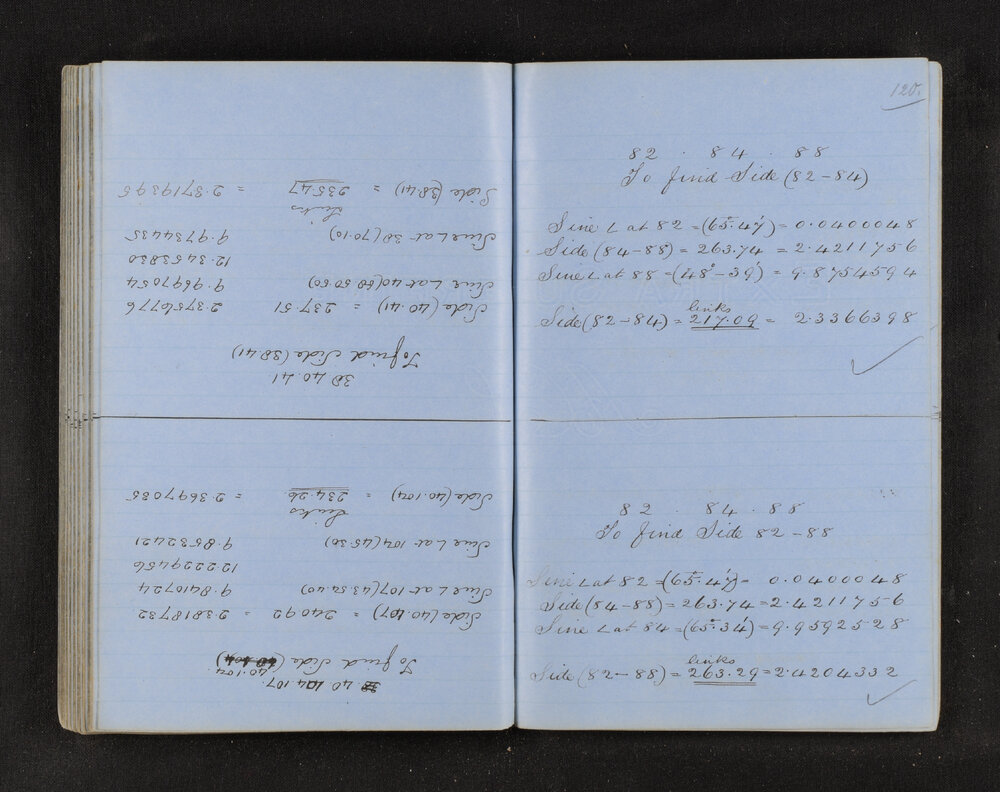 120.
82 . 84 . 88
To find Side (82-84)
Sine ∠ at 82 = (65°.47') = 0.0400048
Side (84-88) = 263.74 = 2.4211756
Sine ∠ at 88 = (48°-39) = 9.8754594
links
Side (82-84) = 217.09 = 2.3366398
82 . 84 . 88
To find Side 82-88
Sine ∠ at 82 = (65°.47') = 0.0400048
Side (84-88) = 263.74 = 2.4211756
Sine ∠ at 84 = (65°.34') = 9.9592528
links
Side (82-88) = 263.29 = 2.4204332
38 40 104 107.
40.104
To find Side (40.104)
Side (40.107) = 240.92 = 2.3818732
Sine ∠ at 107 (43.52.40) 9.8410724
12.2229456
Sine ∠ at 104 (45.30) 9.8532421
Links
Side (40.104) = 234.26 = 2.3697035
38.40.41
To find Side (38.41)
Side (40.41) = 237.51 2.3756776
Sine ∠ at 40 (68 50.50) 9.9697054
12.3453830
Sine ∠ at 38 (70.10) 9.9734435
Links
Side (38.41) = 235.47 = 2.3719395